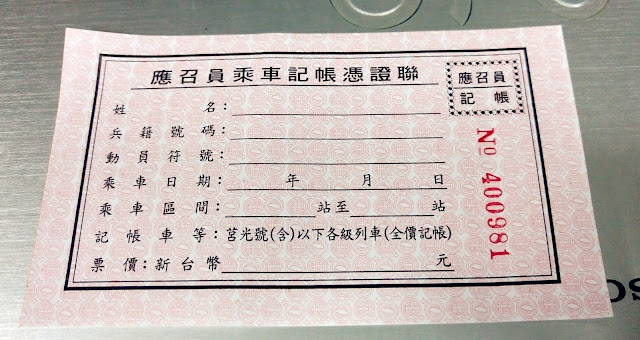 應召員乘車記帳憑證聯
應召員
記帳
姓名：
兵籍號碼：
動員符號：
乘車日期：年月日
乘車區間：站至站
記帳車等：莒光號(含)以下各級列車(全價記帳)
票價：新台幣元
No 400981
OS